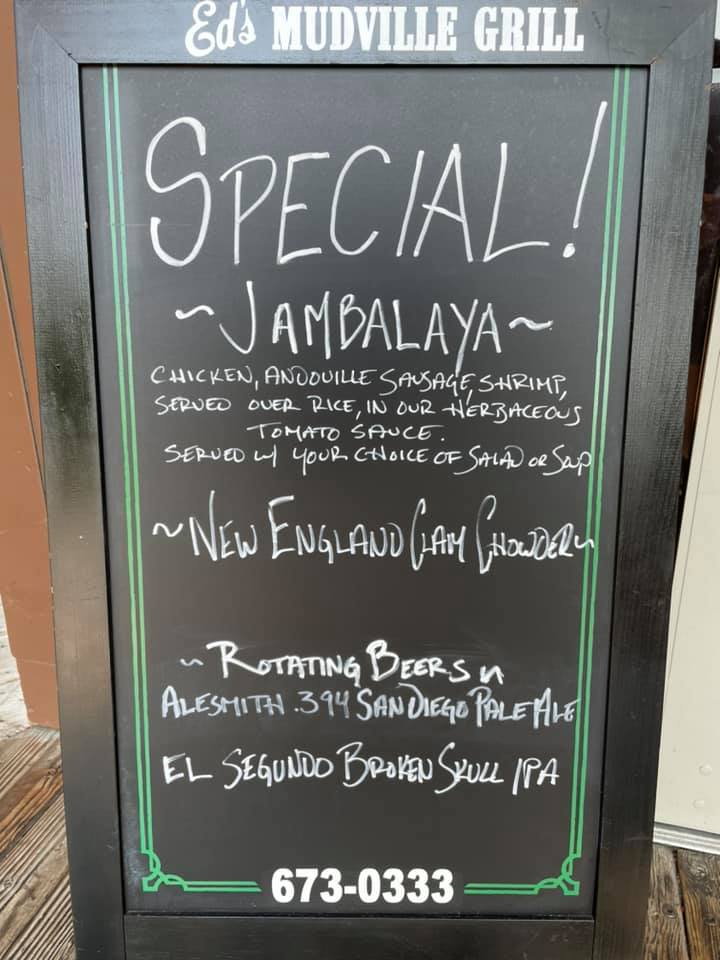 Ed's MUDVILLE GRILL
SPECIAL!
~JAMBALAYA~
CHICKEN, ANDOUILLE SAUSAGE, SHRIMP,
SERVED OVER RICE, IN OUR HERBACEOUS
TOMATO SAUCE.
SERVED W/ YOUR CHOICE OF SALAD OR SOUP
~NEW ENGLAND CLAM CHOWDER~
~ROTATING BEERS~
ALESMITH .394 SAN DIEGO PALE ALE
EL SEGUNDO BROKEN SKULL IPA
673-0333